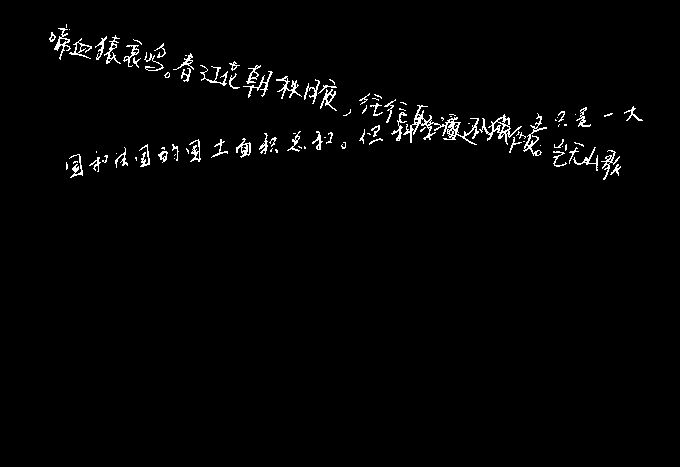 啼血猿哀鸣。春江花朝秋月夜,往往取 还 。岂无山歌
国和法国的国土面积总和。但科 只是一大